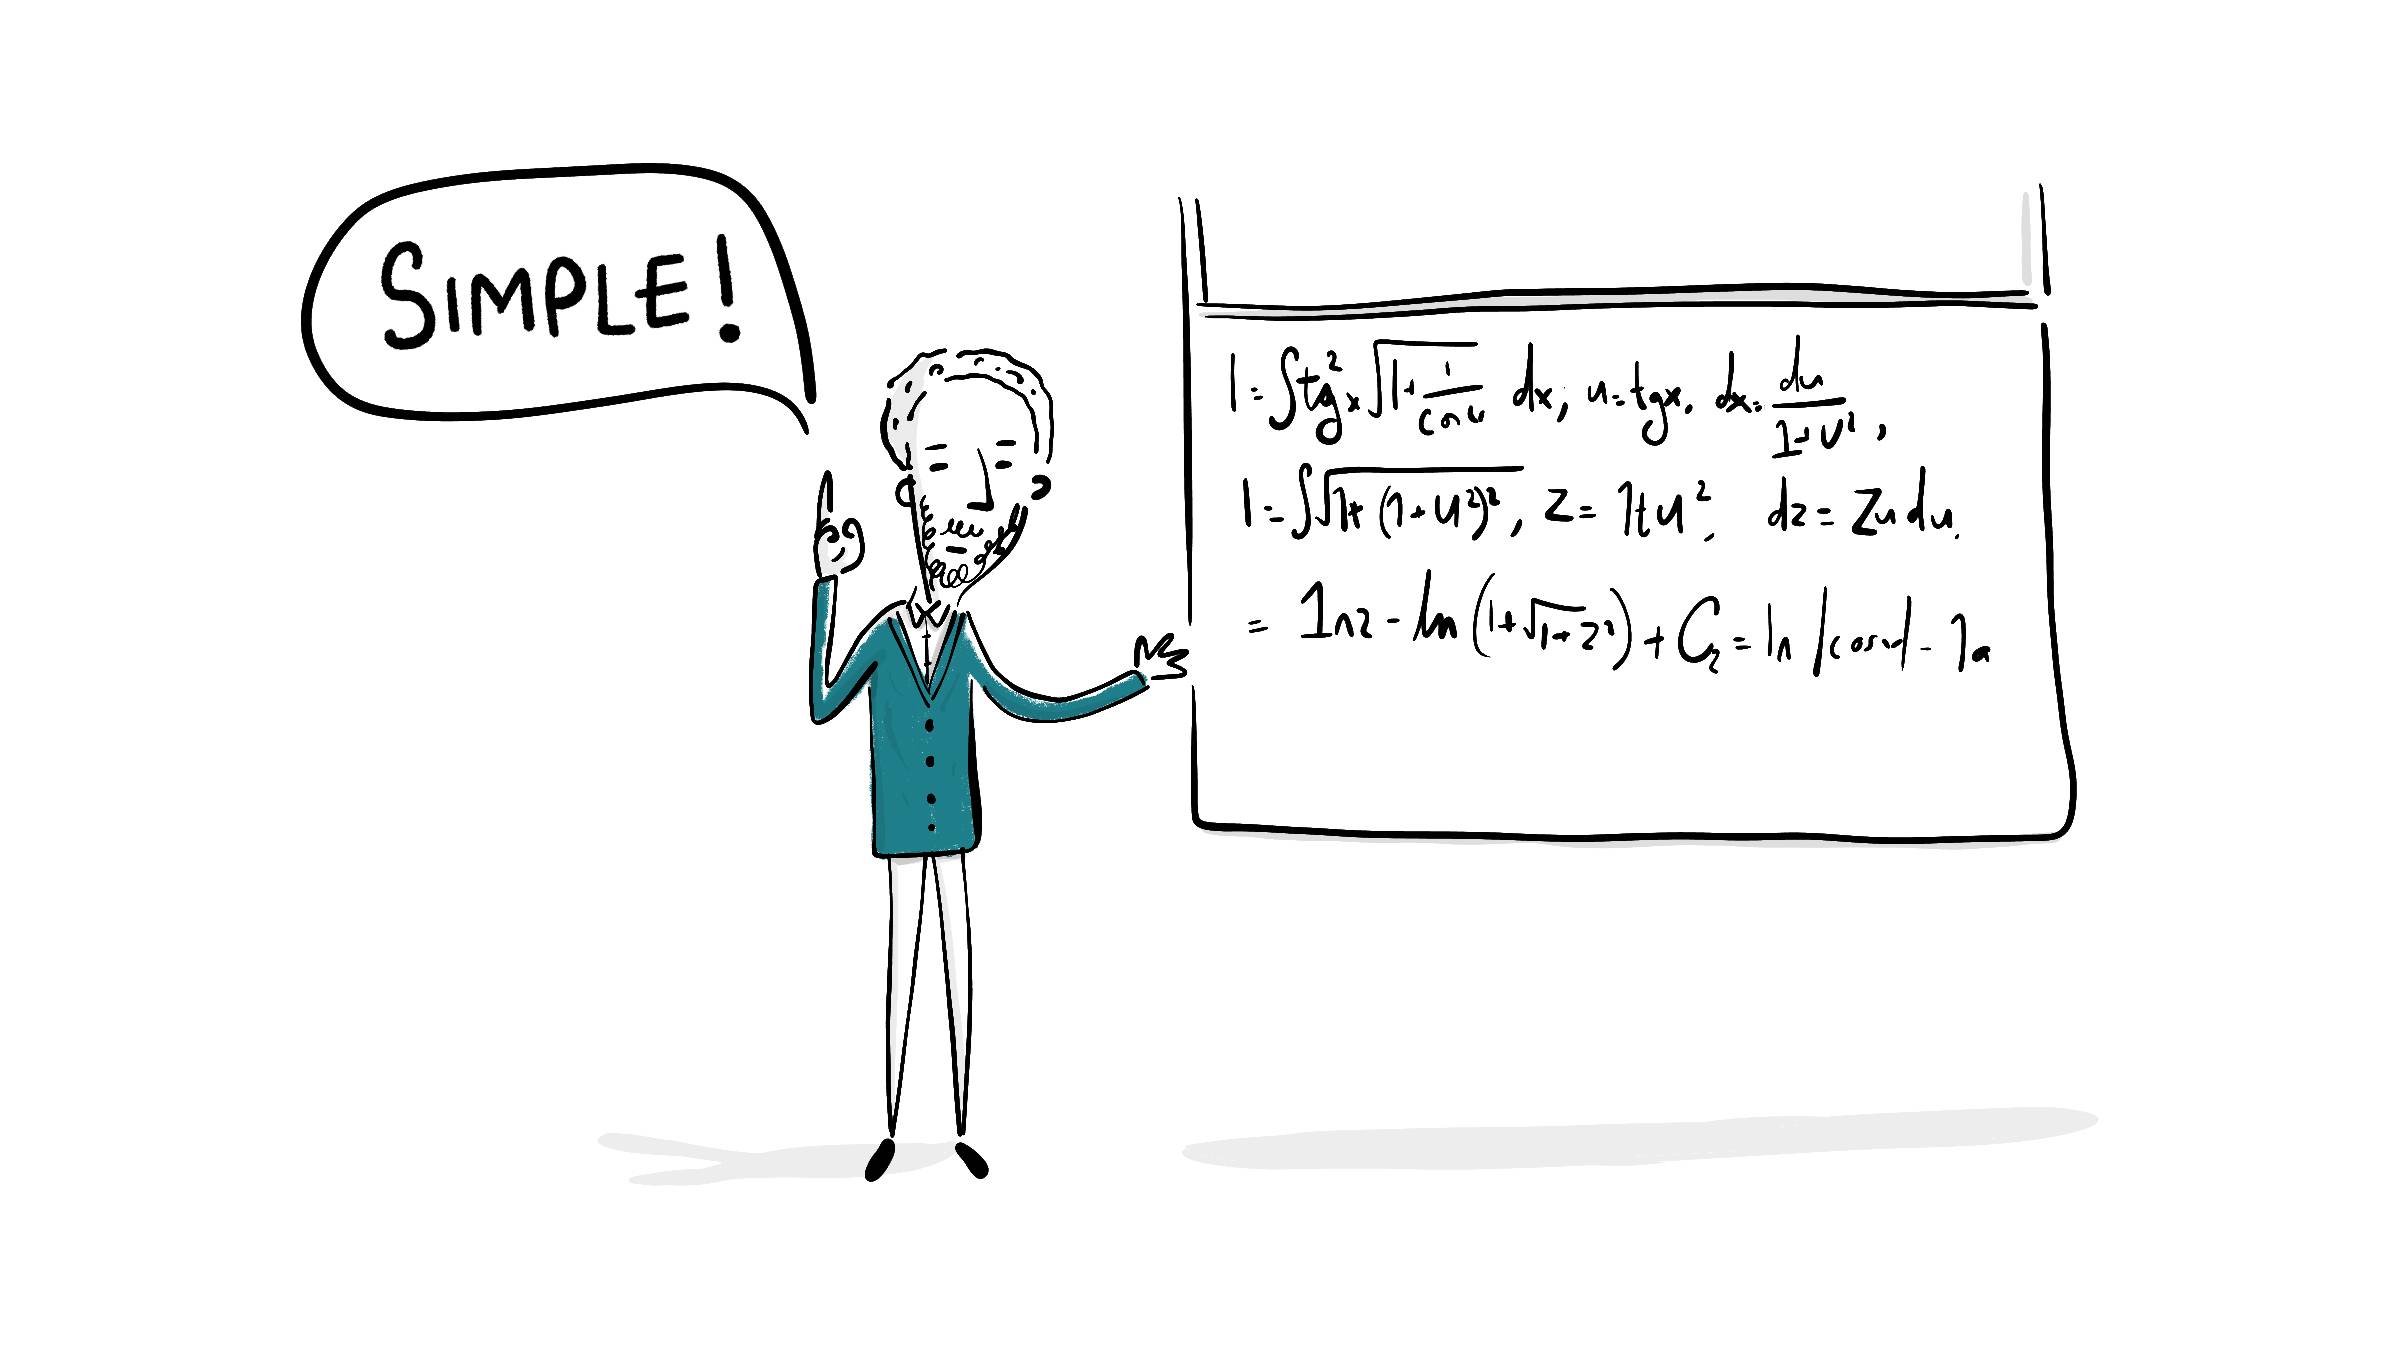 SIMPLE!
I = ∫tg²x √1+1/cos u dx, u = tgx. dx = du/1+u²,
I = ∫√1+(1+u²)², z = 1+u², dz = Zu du.
= 1nz - ln (1+√1+z²) + C₂ = ln |cosx| -